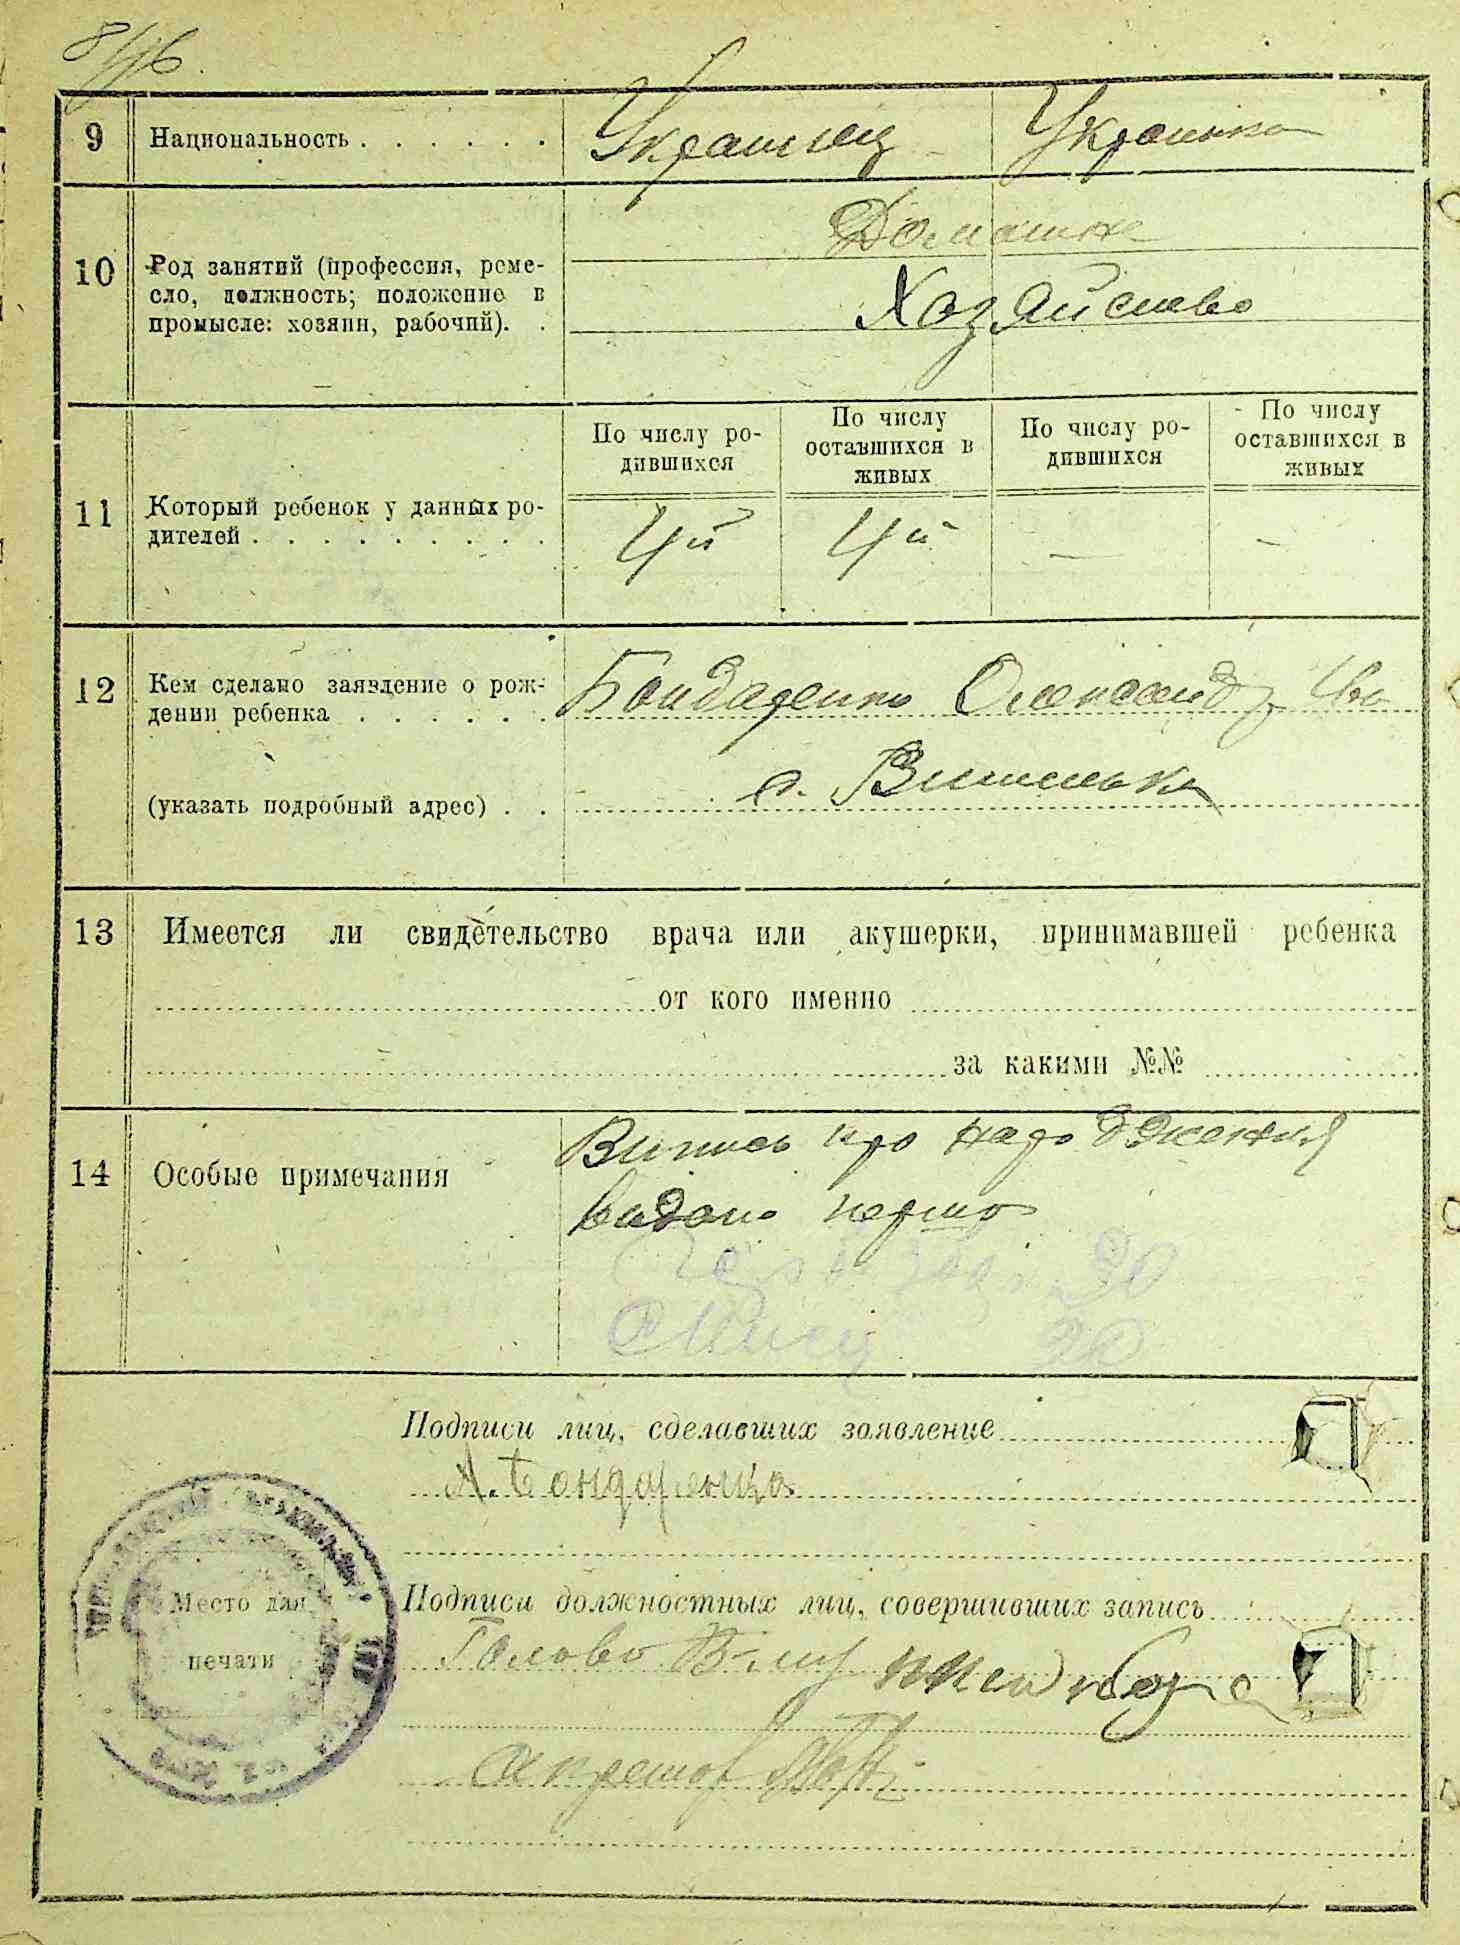 9 Национальность . . . . . . Украинец Украинка
10 Род занятий (профессия, реме-
сло, должность; положение в
промысле: хозяин, рабочий). .
Домашне
Хозяйство
11 Который ребенок у данных ро-
дителей . . . . . . . . . .
По числу ро-
дившихся
По числу
оставшихся в
живых
По числу ро-
дившихся
По числу
оставшихся в
живых
4й 4й — —
12 Кем сделано заявление о рож-
дении ребенка . . . . . .
Бондаренко Олександр Ив
(указать подробный адрес) . .
с. Вишеньки
13 Имеется ли свидетельство врача или акушерки, принимавшей ребенка
от кого именно
за какими №№
14 Особые примечания
Випись про народження
видано
Подписи лиц, сделавших заявление
А. Бондаренко
Место для
печати
Подписи должностных лиц, совершивших запись
Голова